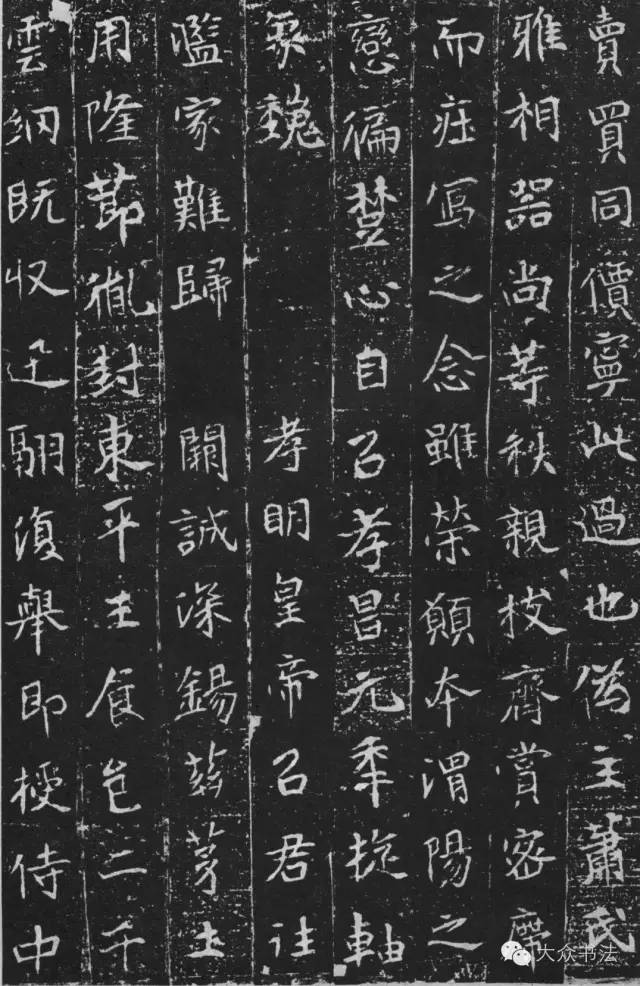 賣買同價寧此過也偽主蕭氏
雅相器尚等秩親枝齊賞密席
而莊寫之念雖榮願本渭陽之
戀偏楚心自以孝昌元年旋軸
象魏 孝明皇帝以君往
濫家難歸 闕誠深錫茲茅土
用隆節胤封東平王食邑二千
雲網既收迅翮復舉即授侍中
大众书法